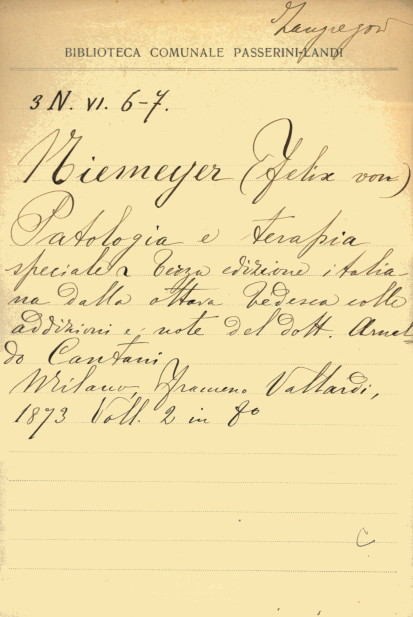 BIBLIOTECA COMUNALE PASSERINI-LANDI
3 N. VI. 6-7.
Niemeyer (Felix von)
Patologia e terapia
speciale terza edizione italia-
na dalla ottava tedesca colle
addizioni e note del dott. Arnal-
do Cantani
Milano, Vallardi,
1873 Voll. 2 in 8°
C